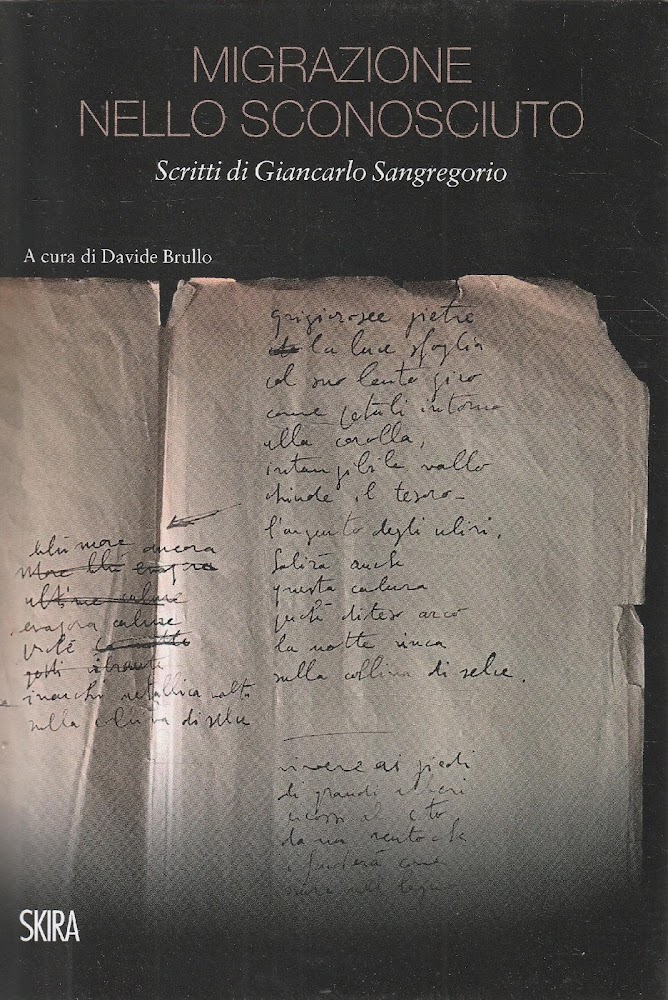 MIGRAZIONE
NELLO SCONOSCIUTO
Scritti di Giancarlo Sangregorio
A cura di Davide Brullo
grigiorosee pietre
la luce sfoglia
col suo lento giro
come petali intorno
alla corolla,
intangibile vallo
chiude il tesoro
l'argento degli ulivi.
Salirà anche
questa calura
poiché diteso arco
la notte inca
sulla collina di selce.
blu more ancora
more blu evapora
ultime calure
evapora calure
metallica
sulla collina di selce
vivere ai piedi
di grandi alberi
da un vento che
come
SKIRA